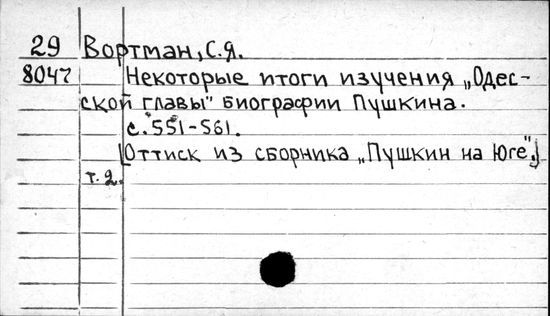 29 Вортман, С.Я.
8047 Некоторые итоги изучения „Одес-
ской главы" биографии Пушкина.
с. 551-561.
[Оттиск из сборника „Пушкин на Юге".]
т. 2.